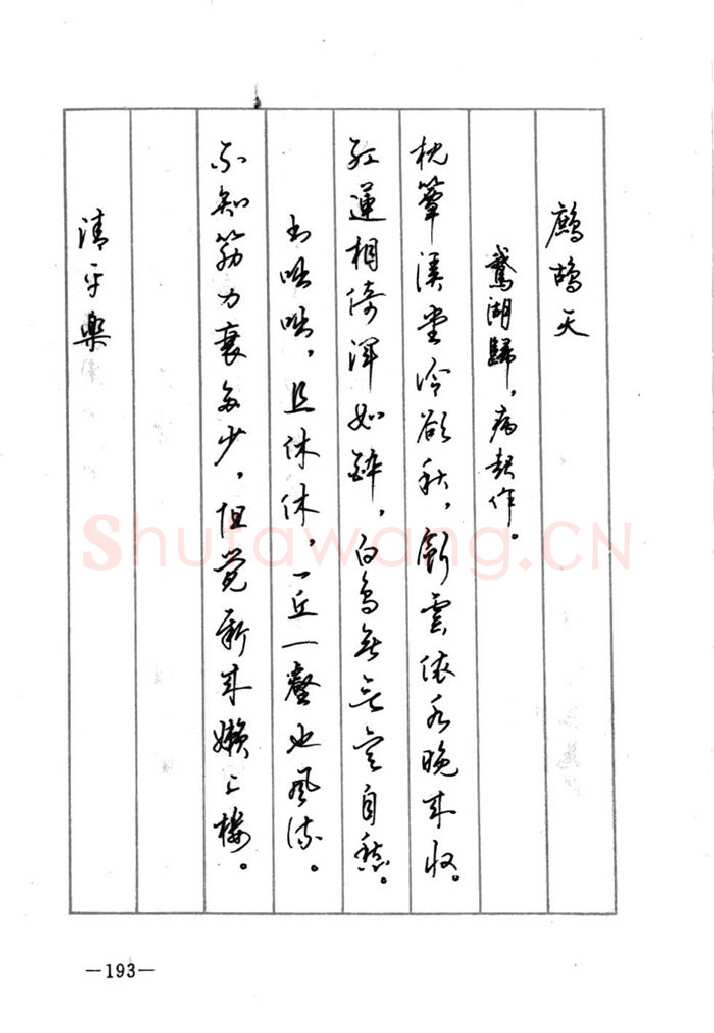 鷓鴣天
鵞湖歸，病起作。
枕簟溪堂冷欲秋，斷雲依水晚來收。
紅蓮相倚渾如醉，白鳥無言定自愁。
書咄咄，且休休，一丘一壑也風流。
不知筋力衰多少，但覺新來嬾上樓。
清平樂
Shufawang.CN
—193—